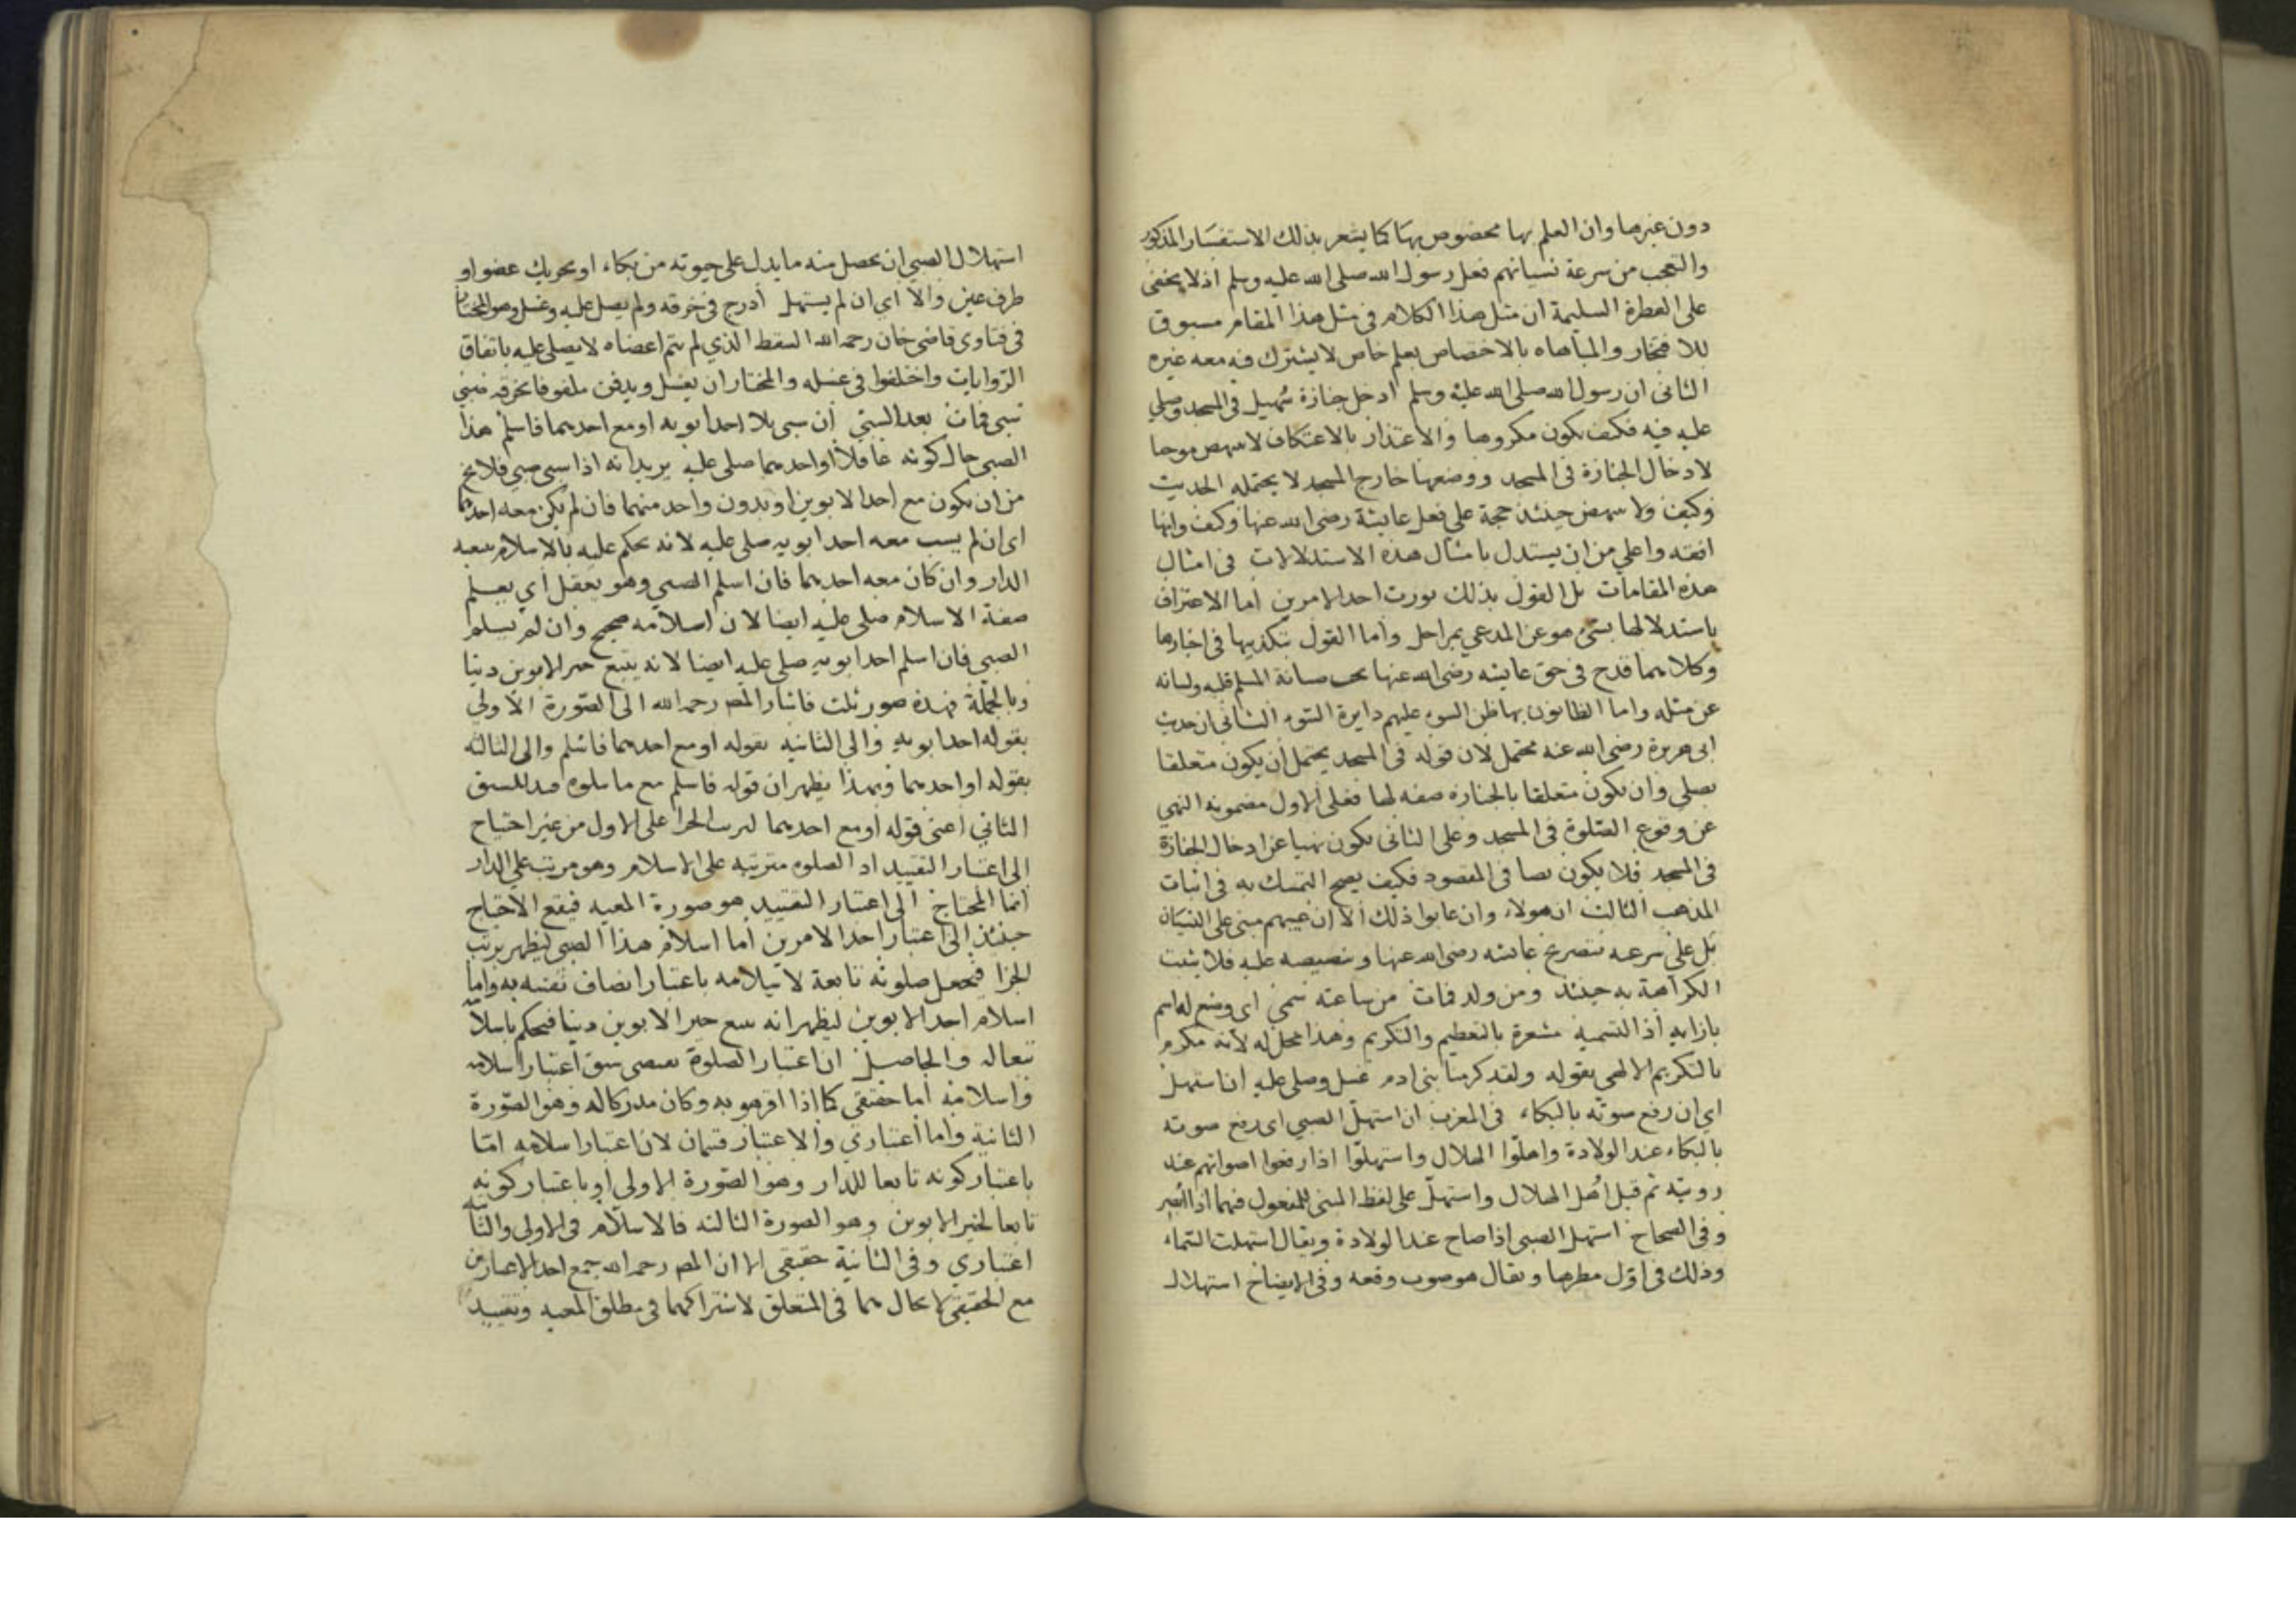 دون غيرها وان العلم بها مخصوص بها كما يشعر بذلك الاستفسار المذكور
والتعجب من سرعة نسيانهم فعل رسول الله صلى الله عليه وسلم اذ لا يخفى
على الفطرة السليمة ان مثل هذا الكلام في مثل هذا المقام مسبوق
للافتخار والمباهاه بالاختصاص بعلم خاص لا يشترك فيه معه غيره
الثاني ان رسول الله صلى الله عليه وسلم ادخل جنازة سُهيل في المسجد وصلي
عليه فيه فكيف يكون مكروها والاعتذار بالاعتكاف لا ينهض موجبا
لادخال الجنازة في المسجد ووضعها خارج المسجد لا يحتمله الحديث
وكيف ولا ينهض حينئذ حجة علي فعل عايشة رضي الله عنها وكيف وانها
افقه واعلي من ان يستدل بامثال هذه الاستدلالات في امثال
هذه المقامات بل القول بذلك يورث احد الامرين اما الاعتراف
باستدلالها بشئ هو عن المدعي بمراحل واما القول بتكذيبها في اخبارها
وكلاهما قدح في حق عايشه رضي الله عنها يجب صيانة المسلم قلبه ولسانه
عن مثله واما الظانون بها ظن السوء عليهم دايرة السوء الثاني ان حديث
ابي هريرة رضي الله عنه محتمل لان قوله في المسجد يحتمل أن يكون متعلقا
بصلي وان يكون متعلقا بالجنازه صفه لها فعلى الاول مضمونه النهي
عن وقوع الصّلوة في المسجد وعلى الثاني يكون نهيا عن ادخال الجنازة
في المسجد فلا يكون نصا في المقصود فكيف يصح التمسك به في اثبات
المذهب الثالث ان هولاء وان عابوا ذلك الا ان عيبهم مبني على النسيان
بل علي سرعته بتصريح عايشه رضي الله عنها وتنصيصه عليه فلا يثبت
الكراهة به حينئذ ومن ولد فمات من ساعته سمي اي وضع له اسم
بازايه اذ التسمية مشعرة بالتعظيم والتكريم وهذا محل له لأنه مكرم
بالتكريم الالهي بقوله ولقد كرمنا بني ادم غسل وصلي عليه ان استهل
اي ان رفع صوته بالبكاء في المغرب ان استهلّ الصبي اي رفع صوته
بالبكاء عند الولادة واهلّوا الهلال واستهلّوا اذا رفعوا اصواتهم عند
رويته ثم قيل اُهل الهلال واستهلّ على لفظ المبني للمفعول فيهما اذا اُبصر
وفي الصحاح استهل الصبي اذا صاح عند الولادة ويقال استهلت السّماء
وذلك في اوّل مطرها ويقال هو صوب وقعه وفي الايضاح استهلال
استهلال الصبي ان يحصل منه ما يدل على حيوته من بكاء او تحريك عضو او
طرف عين والا اي ان لم يستهل أدرج في خرقه ولم يصل عليه وغسل وهو المختار
في فتاوى قاضي خان رحمه الله السقط الذي لم يتم اعضاه لا يصلى عليه باتفاق
الروايات واختلفوا في غسله والمختار ان يغسل ويدفن ملفوفا بخرقه صبي
سبي فمات بعد السبي ان سبي بلا احد ابويه او مع احدهما فاسلم هذا
الصبي حال كونه عاقلا او احدهما صلى عليه يريد انه اذا سبي صبي فلا يخ
من ان يكون مع احد الابوين او بدون واحد منهما فان لم يكن معه احدهما
اي ان لم يسب معه احد ابويه صلى عليه لانه يحكم عليه بالاسلام بتبعيه
الدار وان كان معه احدهما فان اسلم الصبي وهو يعقل اي يعلم
صفة الاسلام صلى عليه ايضا لان اسلامه صحيح وان لم يسلم
الصبي فان اسلم احد ابويه صلى عليه ايضا لانه يتبع خير الابوين دينا
وبالجملة فهذه صور ثلث فاشار المص رحمه الله الى الصّورة الاولي
بقوله احد ابويه والي الثانيه بقوله او مع احدهما فاسلم والى الثالثه
بقوله او احدهما وبهذا يظهر ان قوله فاسلم مع ما يتلوه قيد للشق
الثاني اعني قوله او مع احدهما لترتب الجزا على الاول من غير احتياج
الي اعتبار التقييد اذ الصلوه مترتبه على الاسلام وهو مرتب على الدار
انما المحتاج الى اعتبار التقييد هو صورة المعيه فيقع الاحتياج
حينئذ الى اعتبار احد الامرين اما اسلام هذا الصبي ليظهر ترتب
الجزا فيجعل صلوته تابعة لاسلامه باعتبار اتصاف نفسه به واما
اسلام احد الابوين ليظهر انه يتبع خير الابوين دينا فيحكم باسلامه
تبعا له والحاصل ان اعتبار الصلوة يقتضي سبق اعتبار اسلامه
واسلامه اما حقيقي كما اذا اقر هو به وكان مدركا له وهو الصّورة
الثانية واما اعتباري والاعتبار قسمان لان اعتبار اسلامه امّا
باعتبار كونه تابعا للدار وهو الصّورة الاولي او باعتبار كونه
تابعا لخير الابوين وهو الصورة الثالثه فالاسلام في الاولي والثالثة
اعتباري وفي الثانية حقيقي الا ان المص رحمه الله جمع احد الاعتبارين
مع الحقيقي لا بحالهما في المتعلق لاشتراكهما في مطلق المعيه وتقييد